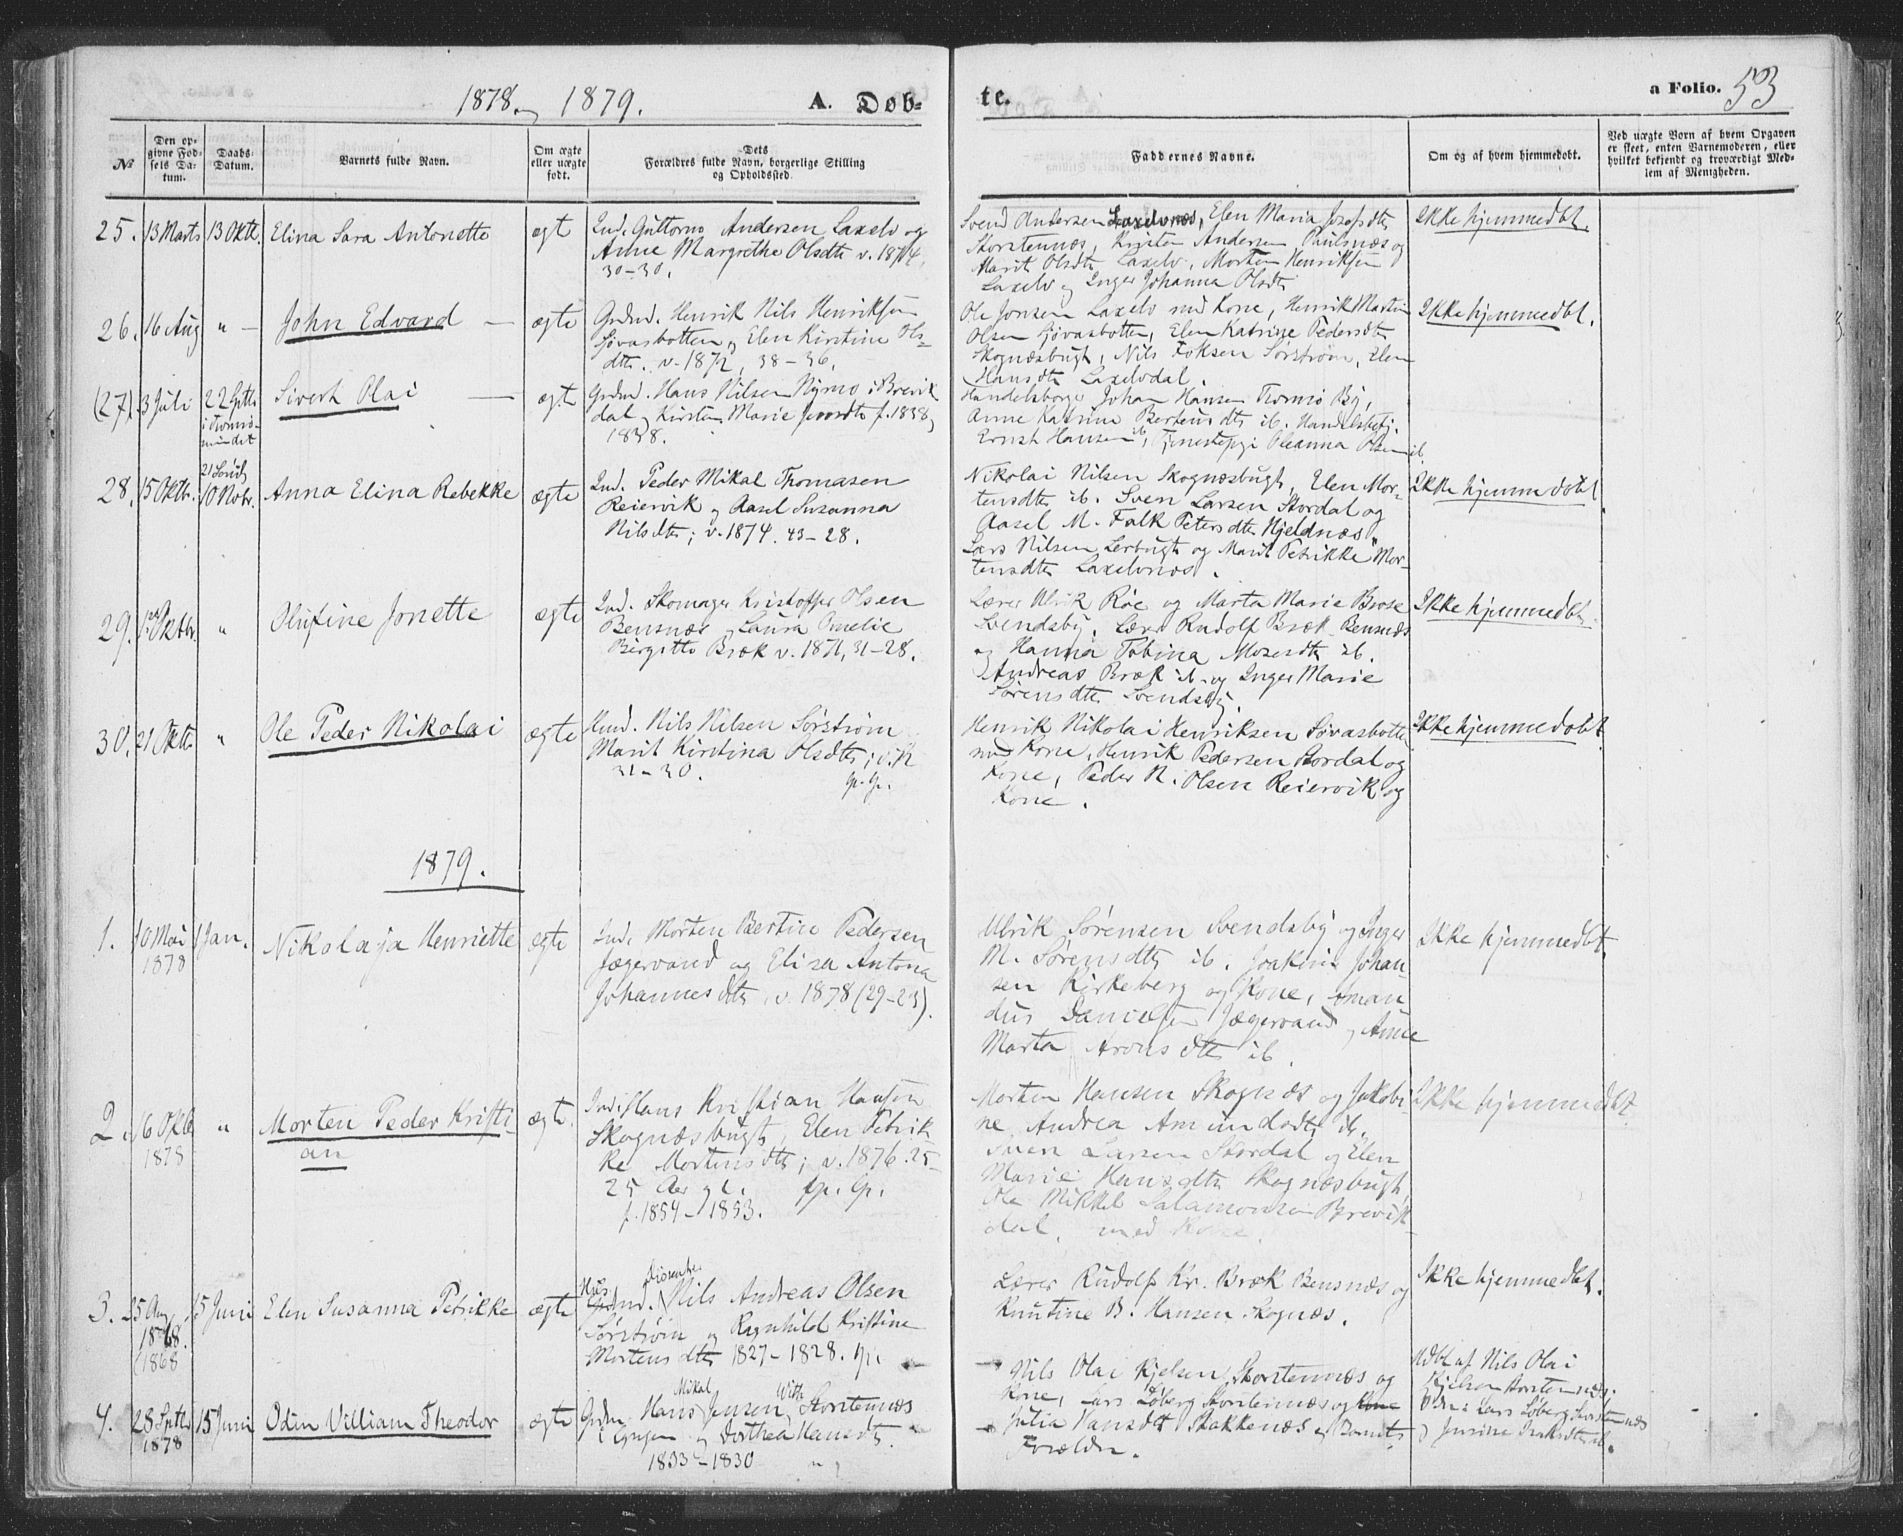 1878 og 1879. A. Dob=
te. a Folio. 53
№
Den op=
givne Fød=
sels Da=
tum.
Daabs=
Datum.
Barnets fulde Navn.
Om ægte
eller uægte
født.
Dets
Forældres fulde Navn, borgerlige Stilling
og Opholdssted.
Faddernes Navne.
Om og af hvem hjemmedøbt.
Ved uægte Børn af hvem Opgaven
er skeet, enten Barnemoderen, eller
hvilket bekjendt og troværdigt Med=
lem af Menigheden.
25. 13 Marts 13 Oktr. Elina Sara Antonette ægt
Ind. Guttorm Andersen Laxelv og
Anne Margrethe Olsdtr v. 1874,
30-30.
Svend Andersen Laxelvnæs, Elen Maria Josefsdtr
Storstennæs, Kristen Andersen Paulsnæs og
Marit Olsdtr Laxelv, Morten Henriksen
Laxelv og Inger Johanna Olsdtr
Ikke hjemmedbt.
26. 16 Aug " - John Edvard - ægte
Grdmd. Henrik Nils Henriksen
Sjøvasbotten og Elen Kirstine Ols=
dtr. v. 1872, 38-36.
Ole Jonsen Laxelv med Kone, Henrik Martin
Olsen Sjøvasbotten, Elen Katrine Pedersdtr
Skognæsbugt, Nils Foksen Sørstrøm, Elen
Hansdtr Laxelvdal.
Ikke hjemmedbt.
(27). 3 Juli 22 Sptbr
i Tromsø-
sundet
Sivert Olai - ægte
Grdmd. Hans Nilsen Nymo i Brevik
dal og Kirsten Marie Jensdtr f. 1838 og
1838.
Handelsborger Johan Hansen Tromsø By,
Anne Katrine Bertensdtr ib. Handelsbetj.
Ernst Hansen ib, Tjenestepige Oleanna Olsen ib.
28. 15 Oktbr. 21 Sønd
10 Novbr. Anna Elina Rebekke ægte
Ind. Peder Mikal Thomasen
Reiervik og Aasel Susanna
Nilsdtr; v. 1874. 43-28.
Nikolai Nilsen Skognæsbugt, Elen Mor-
tensdtr ib. Sven Larsen Stordal og
Aasel M. Falk Petersdtr Hjeldnæs,
Lars Nilsen Lerbugt og Marit Petrikke Mor-
tensdtr Laxelvnæs.
Ikke hjemmedøbt
29. Oktbr. " Olufine Jonette ægte
Ind. Skomager Kristoffer Olsen
Bensnæs og Laura Amelie
Birgitte Bræk v. 1871, 31-28.
Lærer Ulrik Røe og Marta Marie Brose
Svendsby. Lærer Rudolf Bræk Bensnæs
og Hanna Tobina Mosesdtr ib.
Andreas Bræk ib. og Inger Marie
Sørensdtr Svendsby.
Ikke hjemmedbt
30. 21 Oktbr " Ole Peder Nikolai ægte
Nils Nilsen Sørstrøm
Marit Kirstina Olsdtr; v.
31-30.
Henrik Nikolai Henriksen Sjøvasbotten
med Kone, Henrik Pedersen Stordal og
Kone, Peder N. Olsen Reiervik og
Kone.
Ikke hjemmedøbt
1879.
1. 10 Mai
1878
1 Jan. Nikolaja Henriette ægte
Ind. Morten Bertin Pedersen
Jægervand og Elisa Antona
Johannesdtr, v. 1878 (29-23).
Ulrik Sørensen Svendsby og Inger
M. Sørensdtr ib. Joakim Johan-
sen Kirkeberg og Kone, Aman
dus Danielsen Jægervand og Anne
Marta Aronsdtr ib.
Ikke hjemmedbt.
2. 16 Oktbr
1878
" Morten Peder Kristi-
an ægte.
Ind. Hans Kristian Hansen
Skognæsbugt, Elen Petrik
ke Mortensdtr; v. 1876. 25-
25 Aar gl.
f. 1854-1853.
Morten Hansen Skognæs og Jakobi-
ne Andrea Amundsdtr ib.
Sven Larsen Stordal og Elen
Marie Hansdtr Skognæsbugt,
Ole Mikkel Salamonsen Brevik
dal, med Kone.
Ikke hjemmedbt.
3. 25 Aug
1868.
(1868
15 Juni Elen Susanna Petrikke ægte
Dissenter
Hus
Grdmd. Nils Andreas Olsen
Sørstrøm og Ragnhild Kristine
Mortensdtr 1827-1828.
Lærer Rudolf Kr. Bræk Bensnæs og
Knutine B. Hansen Skognæs.
Ikke hjemmedbt.
4. 28 Sptbr
1878
15 Juni Odin Villiam Theodor ægte
Grdm. Hans Mikal Jensen With Storstennæs
i Lyngen og Dorthea Hansdtr.
1833-1830
Nils Olai Kjelsen Storstennæs og
Kone, Lars Løberg Storstennæs og Kone
Julia Hansdtr Stakkenæs og Barnets
Forældre.
Hdbt af Nils Olai
Kjelsen Storstennæs.
Lars Løberg Storstennæs